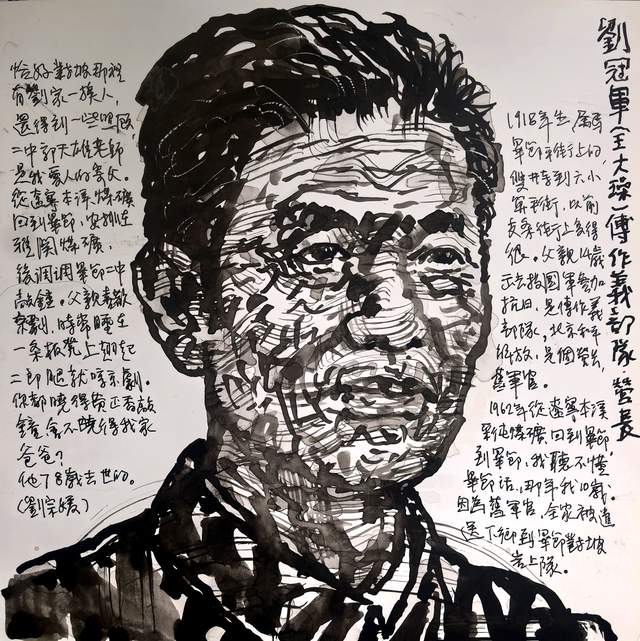 劉冠軍(王大 傅作義部隊·營長
1918年生 屬馬
畢節 街上的,
雙井寺到六小,
算新街,以前
街上多得
很。父親14歲
出去投國軍參加
抗日,是傅作義
部隊,北京和平
解放,是個營長,
舊軍官。
1962年從遼寧本溪
彩屯煤礦回到畢節,
到畢節,我聽不懂
畢節話,那年我10歲。
因為舊軍官,全家被遣
送下鄉到畢節對坡
岩上隊。
恰好對坡那裡
有劉家一族人,
還得到一些照顧,
二中郭天雄老師
是我愛人的舅父。
從遼寧本溪煤礦
回到畢節,安排在
雅關煤礦,
後調調畢節二中
敲鐘。父親喜歡
京劇,時常睡在
一條板凳上翹起
二郎腿就哼京劇。
你都曉得 正 敲
鐘,會不曉得我家
爸爸?
他78歲去世的。
(劉宗媛)